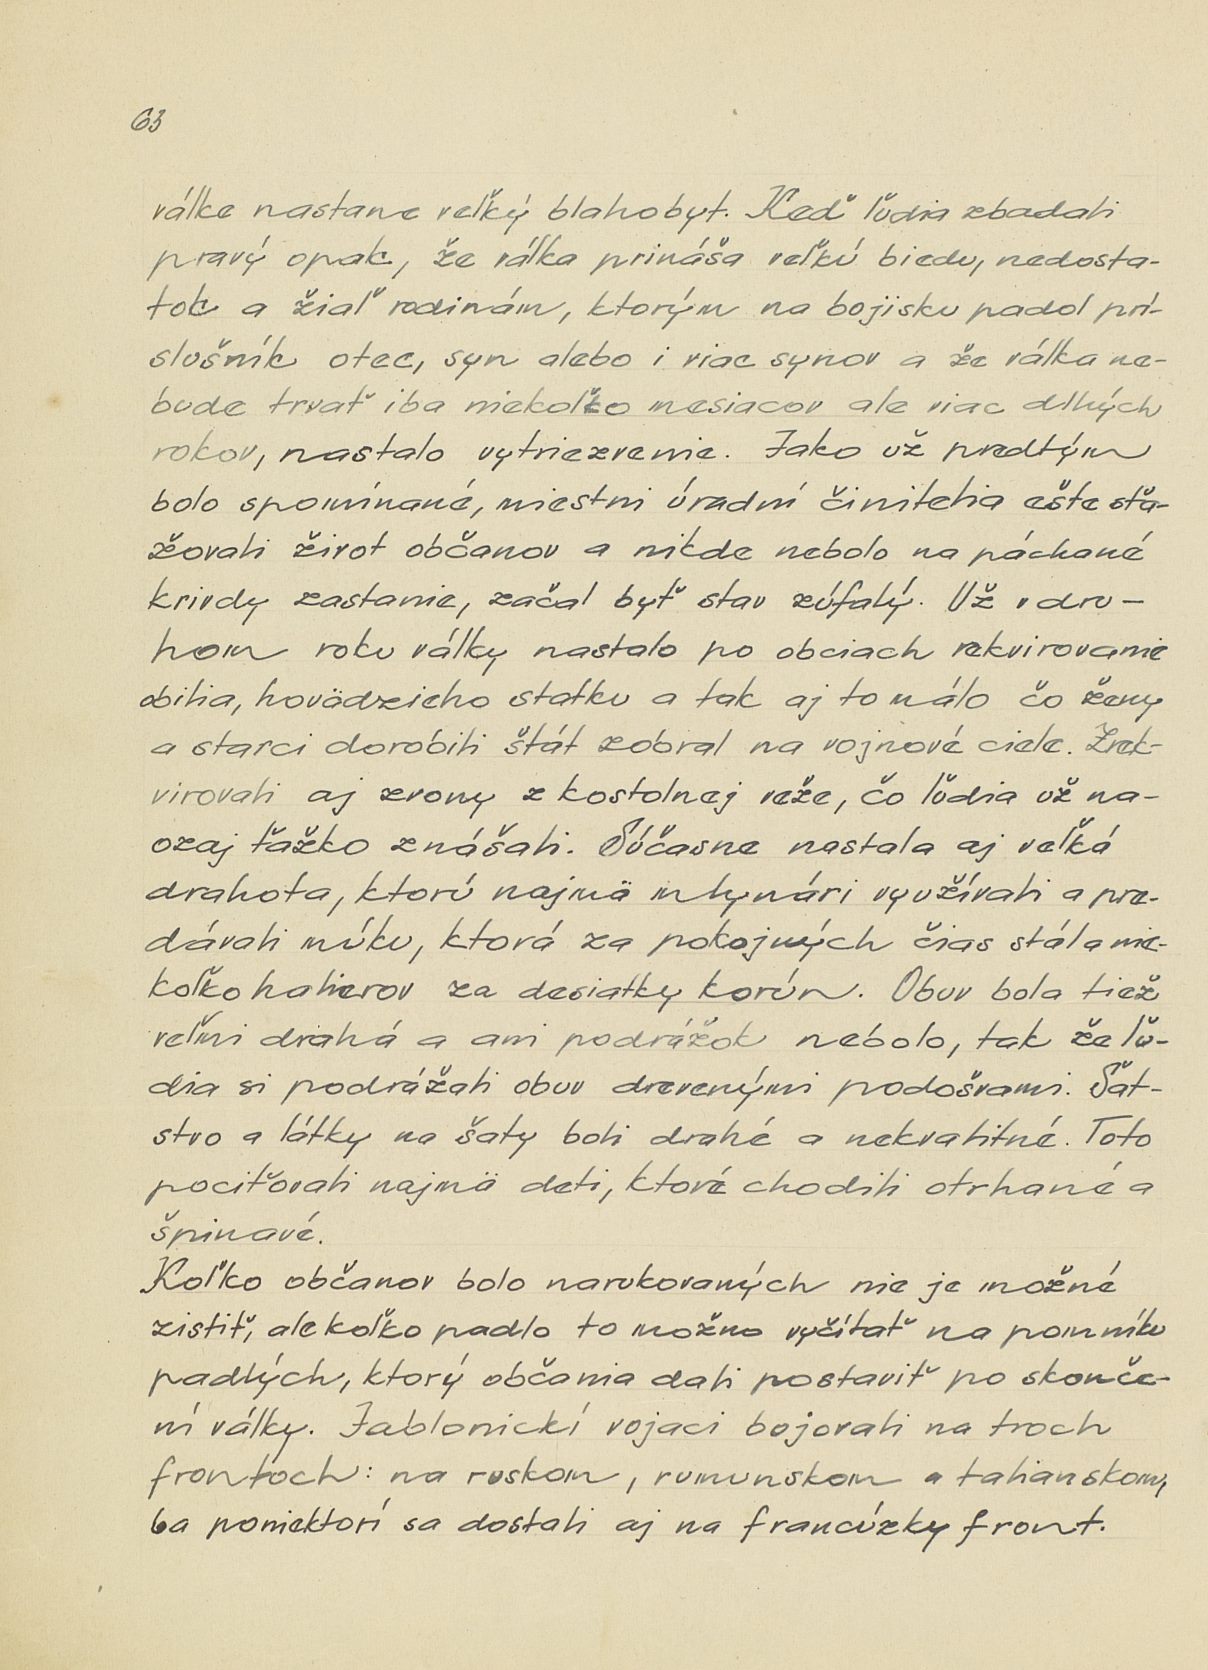 63
válke nastane veľký blahobyt. Keď ľudia zbadali
pravý opak, že válka prináša veľkú biedu, nedosta-
tok a žiaľ rodinám, ktorým na bojisku padol prí-
slušník otec, syn alebo i viac synov a že válka ne-
bude trvať iba niekoľko mesiacov ale viac dlhých
rokov, nastalo vytriezvenie. Jako už predtým
bolo spomínané, miestni úradní činitelia ešte sťa-
žovali život občanov a nikde nebolo na páchané
krivdy zastanie, začal byť stav zúfalý. Už v dru-
hom roku války nastalo po obciach rekvirovanie
obilia, hovädzieho statku a tak aj to málo čo ženy
a starci dorobili štát zobral na vojnové ciele. Zrek-
virovali aj zvony z kostolnej veže, čo ľudia už na-
ozaj ťažko znášali. Súčasne nastala aj veľká
drahota, ktorú najmä mlynári využívali a pre-
dávali múku, ktorá za pokojných čias stála nie-
koľko halierov za desiatky korún. Obuv bola tiež
veľmi drahá a ani podrážok nebolo, tak že ľu-
dia si podrážali obuv drevenými podošvami. Šat-
stvo a látky na šaty boli drahé a nekvalitné. Toto
pociťovali najmä deti, ktoré chodili otrhané a
špinavé.
Koľko občanov bolo narukovaných nie je možné
zistiť, ale koľko padlo to možno vyčítať na pomníku
padlých, ktorý občania dali postaviť po skonče-
ní války. Jablonickí vojaci bojovali na troch
frontoch: na ruskom, rumunskom a talianskom,
ba poniektorí sa dostali aj na francúzky front.